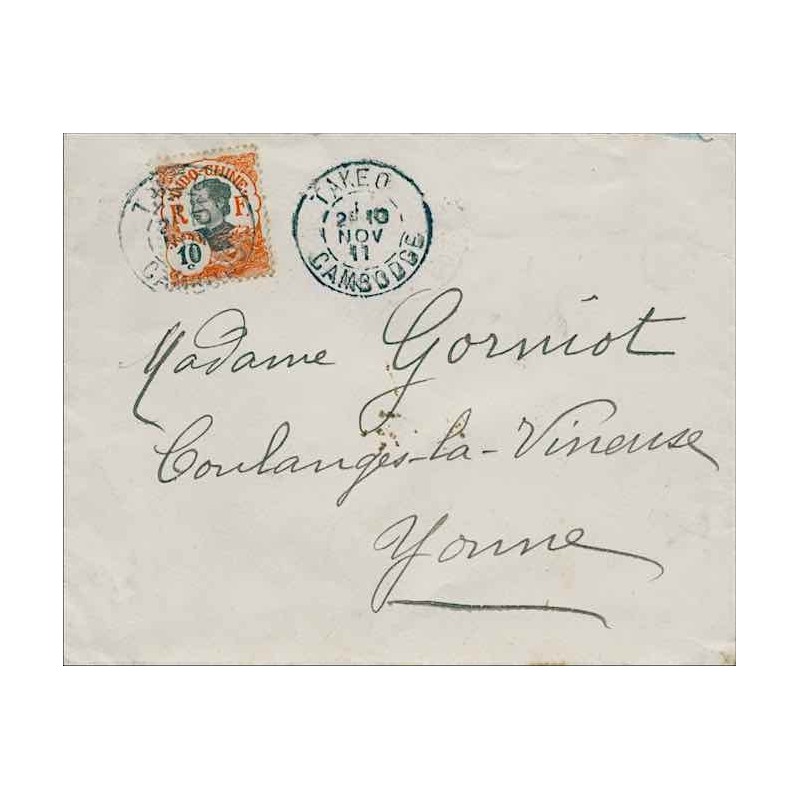 INDO-CHINE
R F
10
c
TAKEO
2E 10
NOV
11
CAMBODGE
Madame Gorniot
Coulanges-la-Vineuse
Yonne